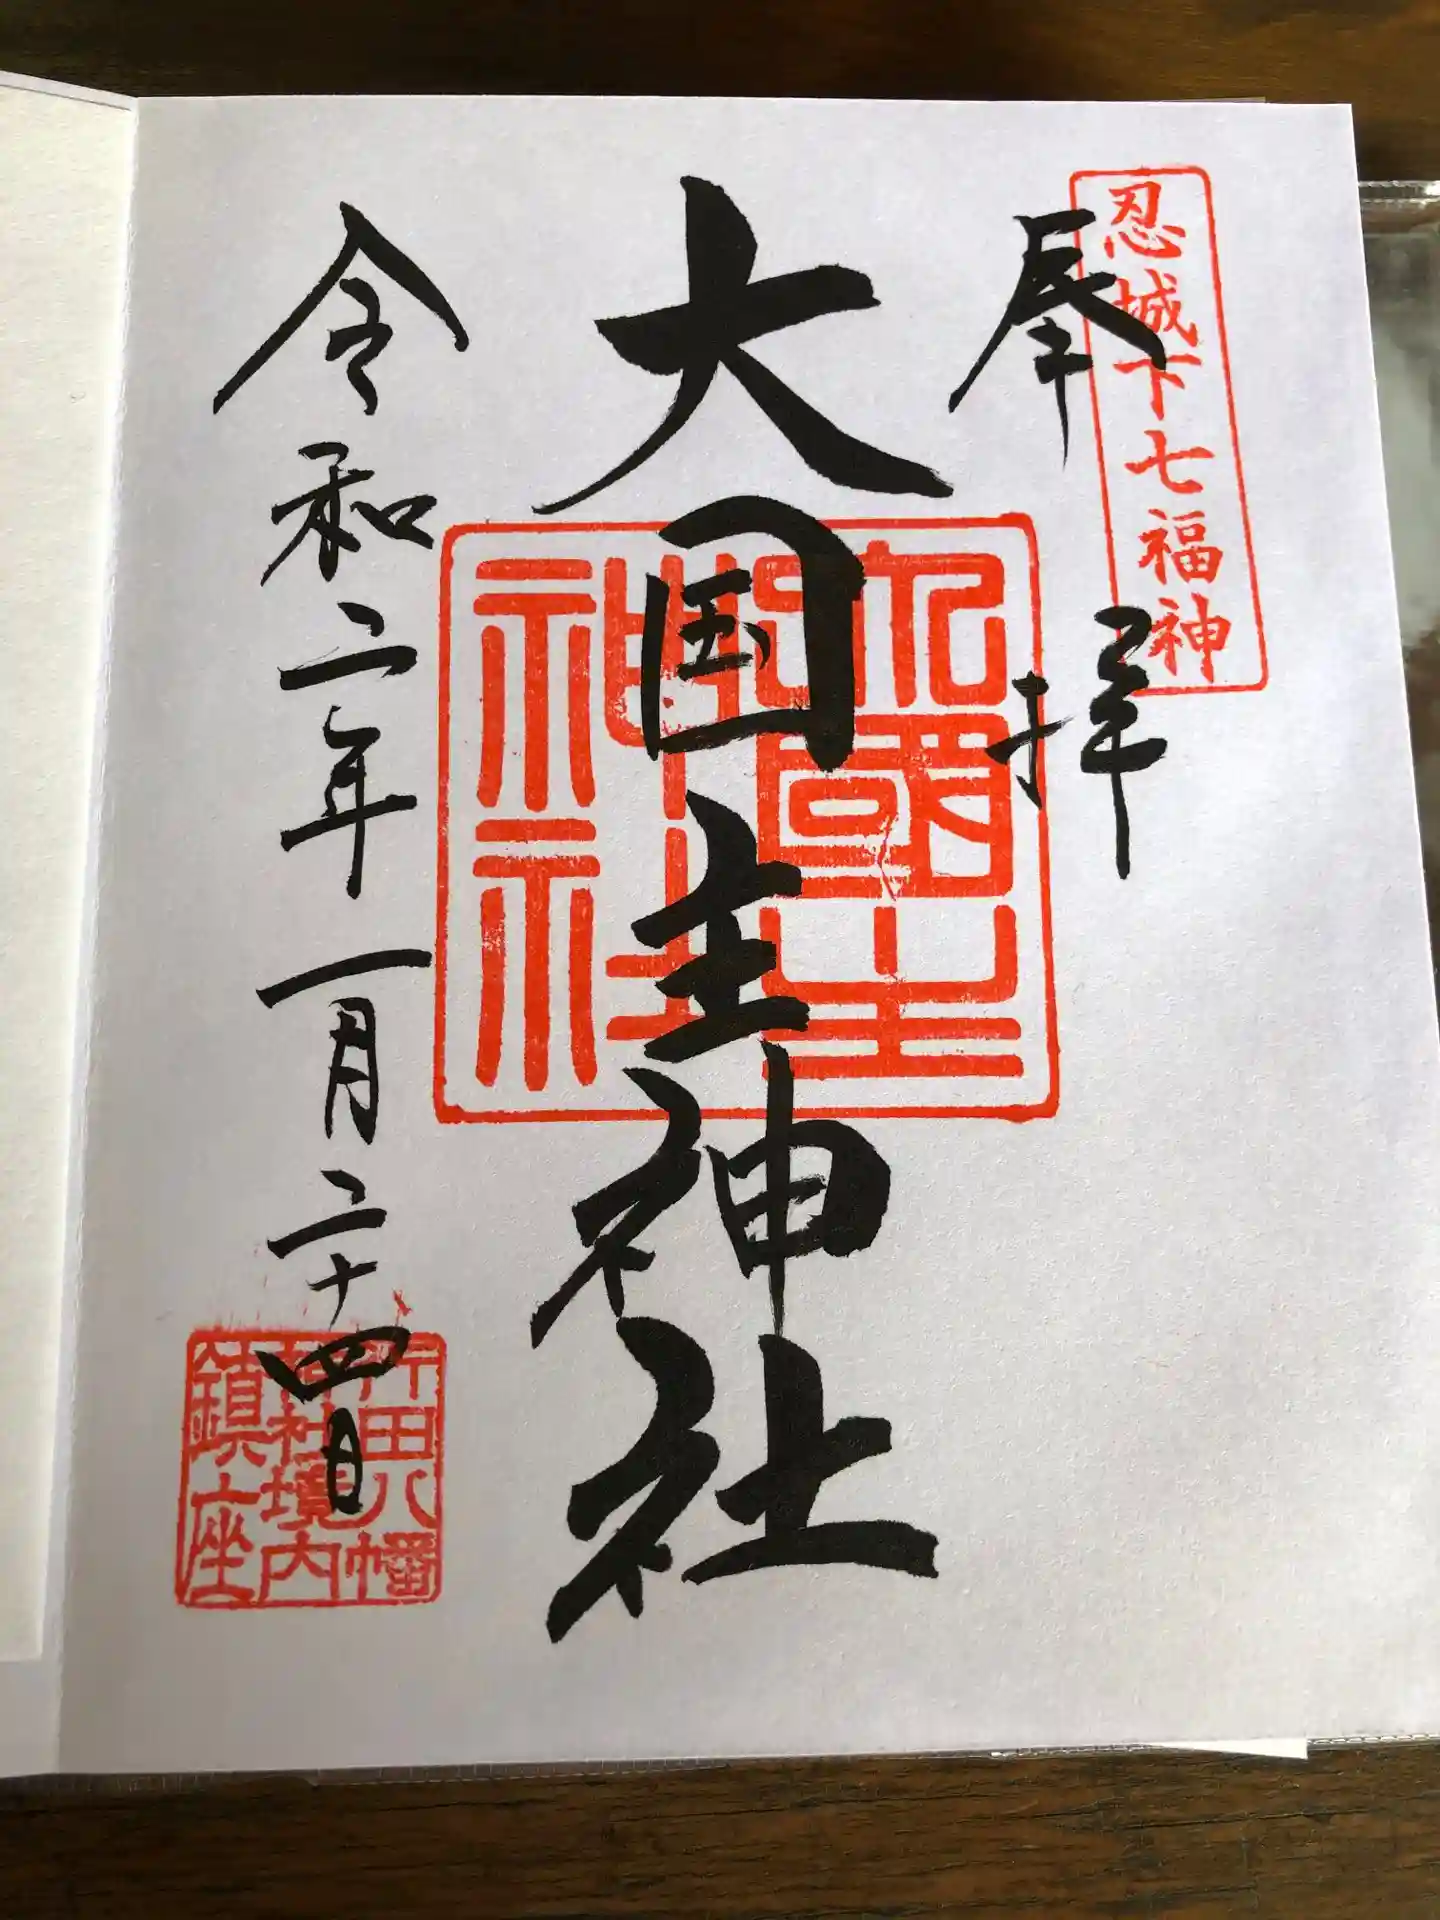 忍城下七福神
奉拝
大国主神社
大國主
神社
令和二年一月二十四日
行田八幡
神社境内
鎮座